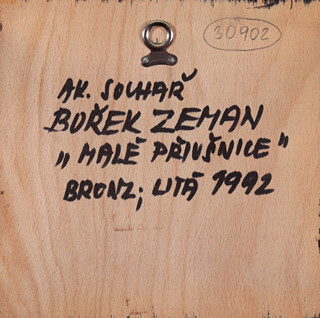 30902
AK. SOCHAŘ
BOŘEK ZEMAN
„MALÉ PŘIUŠNICE"
BRONZ; LITÁ 1992